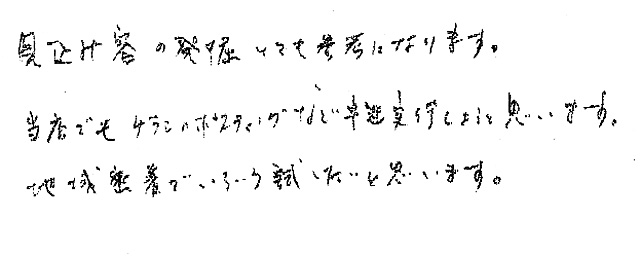 見込み客の発掘 とても参考になります。
当店でも チラシのポスティングなど早速実行しようと思います。
地域密着でいろいろ試したいと思います。